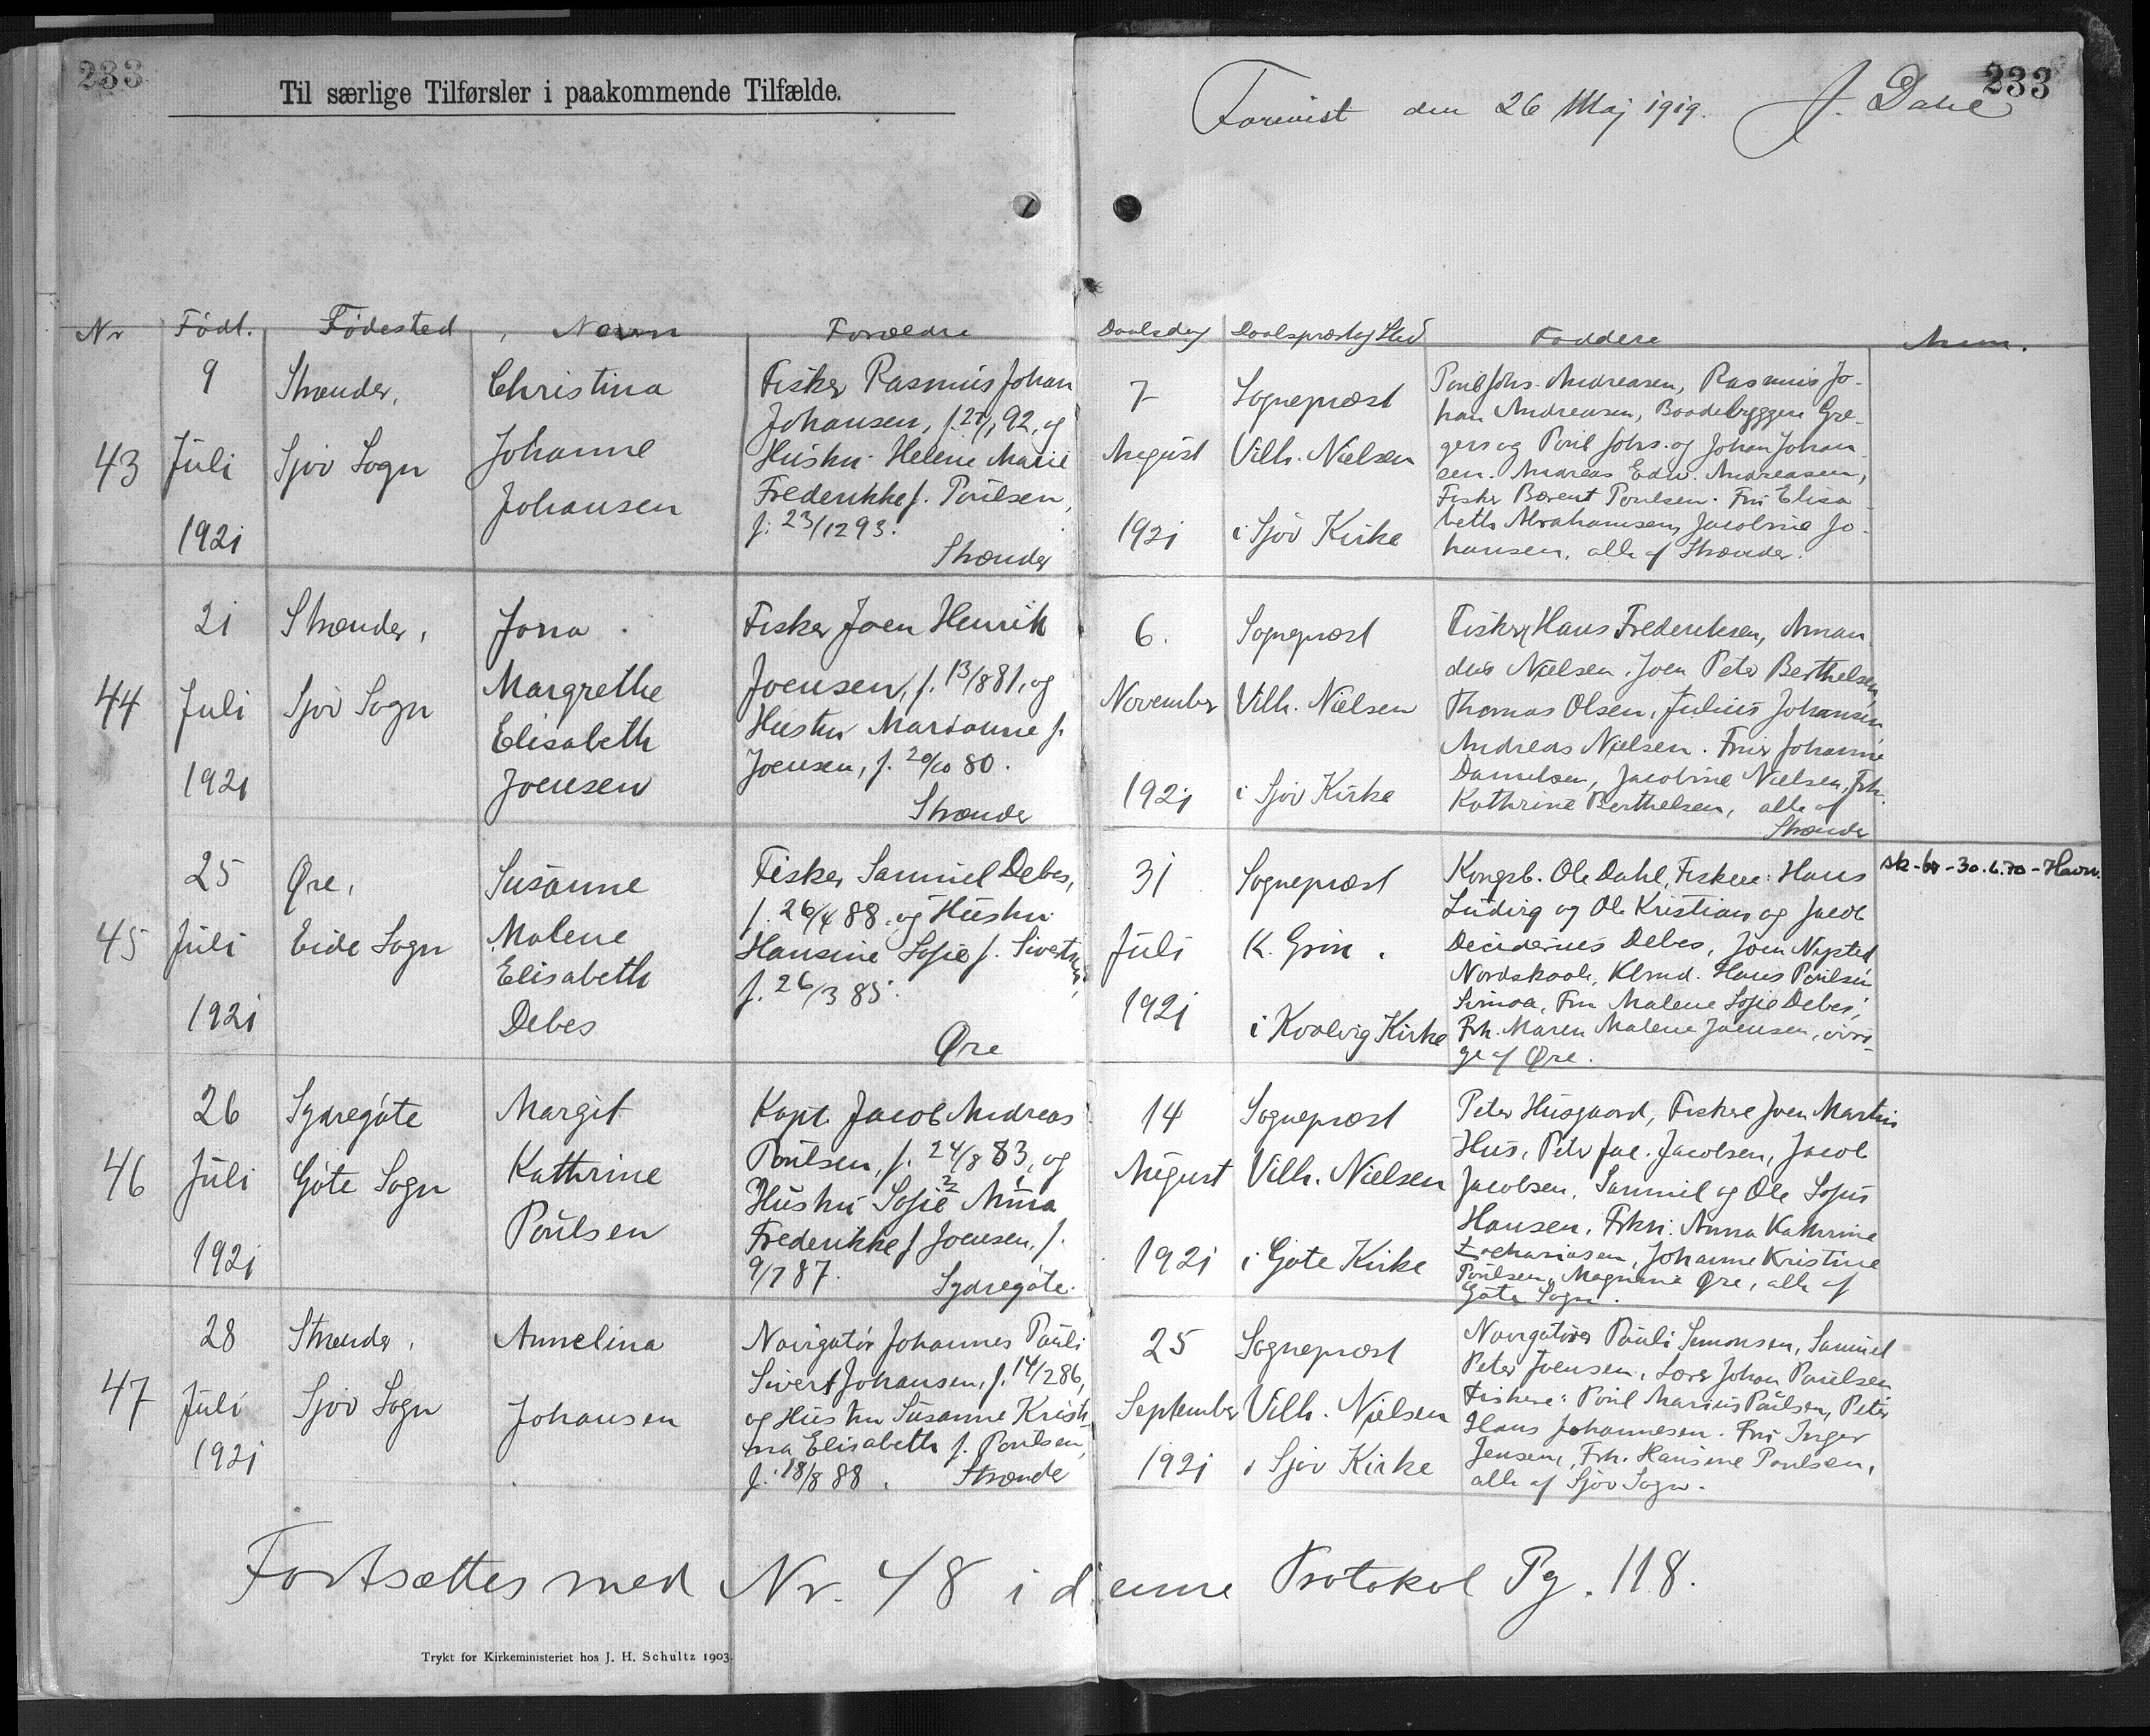 233
Til særlige Tilførsler i paakommende Tilfælde.
233
Forevist den 26 Maj 1919. J. Dahl
Nr Født. Fødested, Navn Forældre
Daabsdag Daabspræst og Sted Faddere Anm.
43
9
Juli
1921
Strænder,
Sjov Sogn
Christina
Johanne
Johansen
Fisker Rasmus Johan
Johansen, f. 27/1 92, og
Hustru Helene Marie
Frederikke f. Poulsen,
f. 23/12 93.
Strænder
7
August
1921
Sognepræst
Vilh. Nielsen
i Sjov Kirke
Poul Johs. Andreasen, Rasmus Jo-
han Andreasen, Baadebyggere Gre-
gers og Poul Johs. og Johan Johan
sen. Andreas Edw. Andreasen,
Fisker Berent Poulsen. Fru Elisa
beth Abrahamsen, Jacobine Jo-
hansen, alle af Strænder.
44
21
Juli
1921
Strænder,
Sjov Sogn
Jona
Margrethe
Elisabeth
Joensen
Fisker Joen Henrik
Joensen, f. 13/8 81, og
Hustru Marianne f.
Joensen, f. 20/10 80.
Strænder
6.
November
1921
Sognepræst
Vilh. Nielsen
i Sjov Kirke
Fisker Hans Frederiksen, Aman
dus Nielsen, Joen Peter Berthelsen,
Thomas Olsen, Julius Johansen
Andreas Nielsen. Fruer Johanne
Danielsen, Jacobine Nielsen, Frk.
Kathrine Berthelsen, alle af
Strænder
45
25
Juli
1921
Øre,
Eide Sogn
Susanne
Malene
Elisabeth
Debes
Fisker Samuel Debes,
f. 26/4 88. og Hustru
Hansine Sofie f. Sivertsen,
f. 26/3 85.
Øre
31
Juli
1921
Sognepræst
K. Grin.
i Kvalvig Kirke
Kongsb. Ole Dahl, Fiskere: Hans
Ludvig og Ole Kristian og Jacob
Debes, Joen Nysted
Nordskaale, Klmd. Hans Poulsen
Fru Malene Sofie Debes,
Frk. Maren Malene Joensen, øvri-
ge af Øre.
sk-br-30.6.70-Havn.
46
26
Juli
1921
Sydregöte
Göte Sogn
Margit
Kathrine
Poulsen
Kapt. Jacob Andreas
Poulsen, f. 24/8 83, og
Hustru Sofie Anna
Frederikke f. Joensen, f.
9/7 87.
Sydregöte.
14
August
1921
Sognepræst
Vilh. Nielsen
i Göte Kirke
Peter Husgaard, Fiskere Joen Martin
Hus, Peter Jac. Jacobsen, Jacob
Jacobsen, Samuel og Ole Sofus
Hansen, Frkn. Anna Kathrine
Zachariasen, Johanne Kristine
Poulsen, Magnine Øre, alle af
Göte Sogn.
47
28
Juli
1921
Strænder,
Sjov Sogn
Annelina
Johansen
Navigatör Johannes Pauli
Sivert Johansen, f. 14/2 86,
og Hustru Susanne Kristi
na Elisabeth f. Poulsen,
f. 18/8 88.
Strænder
25
September
1921
Sognepræst
Vilh. Nielsen
i Sjov Kirke
Navigatörer Pauli Simonsen, Samuel
Peter Joensen, Lærer Johan Poulsen
Fiskere: Poul Marius Poulsen, Peter
Hans Johannesen. Fru Inger
Jensen, Frk. Hansine Poulsen,
alle af Sjov Sogn.
Fortsættes med Nr. 48 i denne Protokol Pg. 118.
Trykt for Kirkeministeriet hos J. H. Schultz 1903.